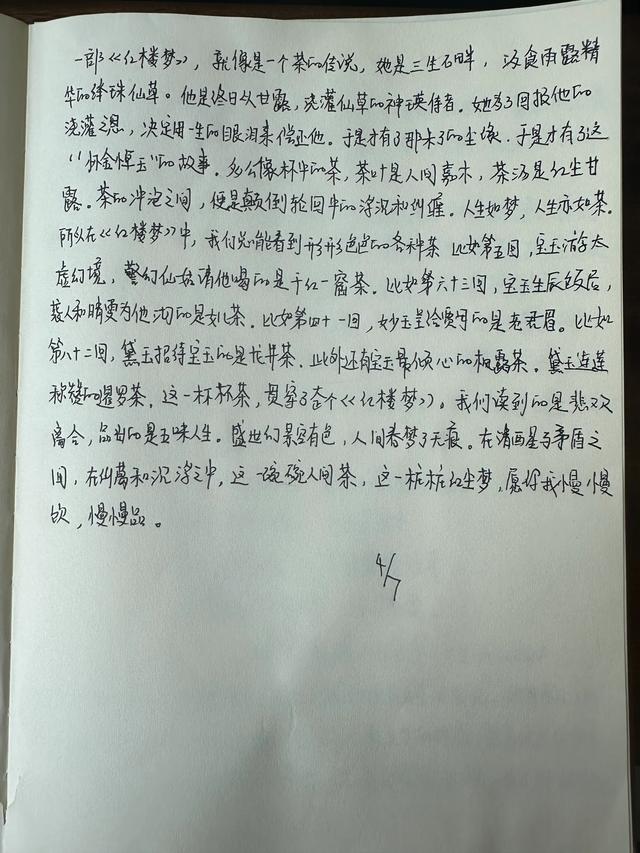 一部《红楼梦》，就像是一个茶的传说，她是三生石畔，汲食雨露精
华的绛珠仙草。他是终日以甘露，浇灌仙草的神瑛侍者。她为了回报他的
浇灌之恩，决定用一生的眼泪来偿还他。于是才有了那未了的尘缘．于是才有了这
“怀金悼玉”的故事。多么像杯中的茶，茶叶是人间嘉木，茶汤是红尘甘
露。茶的冲泡之间，便是颠倒轮回中的浮沉和纠缠．人生如梦，人生亦如茶．
所以在《红楼梦》中，我们总能看到形形色色的各种茶 比如第五回，宝玉游太
虚幻境，警幻仙姑请他喝的是千红一窟茶。比如第六十三回，宝玉生辰饭后，
袭人和晴雯为他沏的是女儿茶。比如第四十一回，妙玉呈给贾母的是老君眉。比如
第八十二回，黛玉招待宝玉的是龙井茶．此外还有宝玉最倾心的枫露茶。黛玉连连
称赞的暹罗茶．这一杯杯茶，贯穿了整个《红楼梦》。我们读到的是悲欢
离合，品出的是五味人生。盛世们景空有色，人间春梦了无痕。在清醒与矛盾之
间，在纠葛和沉浮之中，这一碗碗人间茶，这一桩桩红尘梦，愿你我慢慢
饮，慢慢品。
4/7